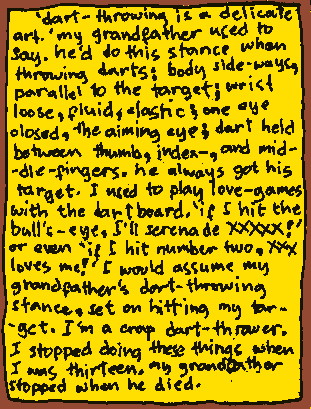 'dart-throwing is a delicate
art.' my grandfather used to
say. he'd do this stance when
throwing darts; body side-ways,
parallel to the target; wrist
loose, fluid, elastic; one eye
closed, the aiming eye; dart held
between thumb, index-, and mid-
-dle-fingers. he always got his
target. I used to play love-games
with the dartboard. 'if I hit the
bull's-eye, I'll serenade XXXXX!'
or even 'if I hit number two, XXX
loves me!' I would assume my
grandfather's dart-throwing
stance, set on hitting my tar-
-get. I'm a crap dart-thrower.
I stopped doing these things when
I was thirteen. my grandfather
stopped when he died.